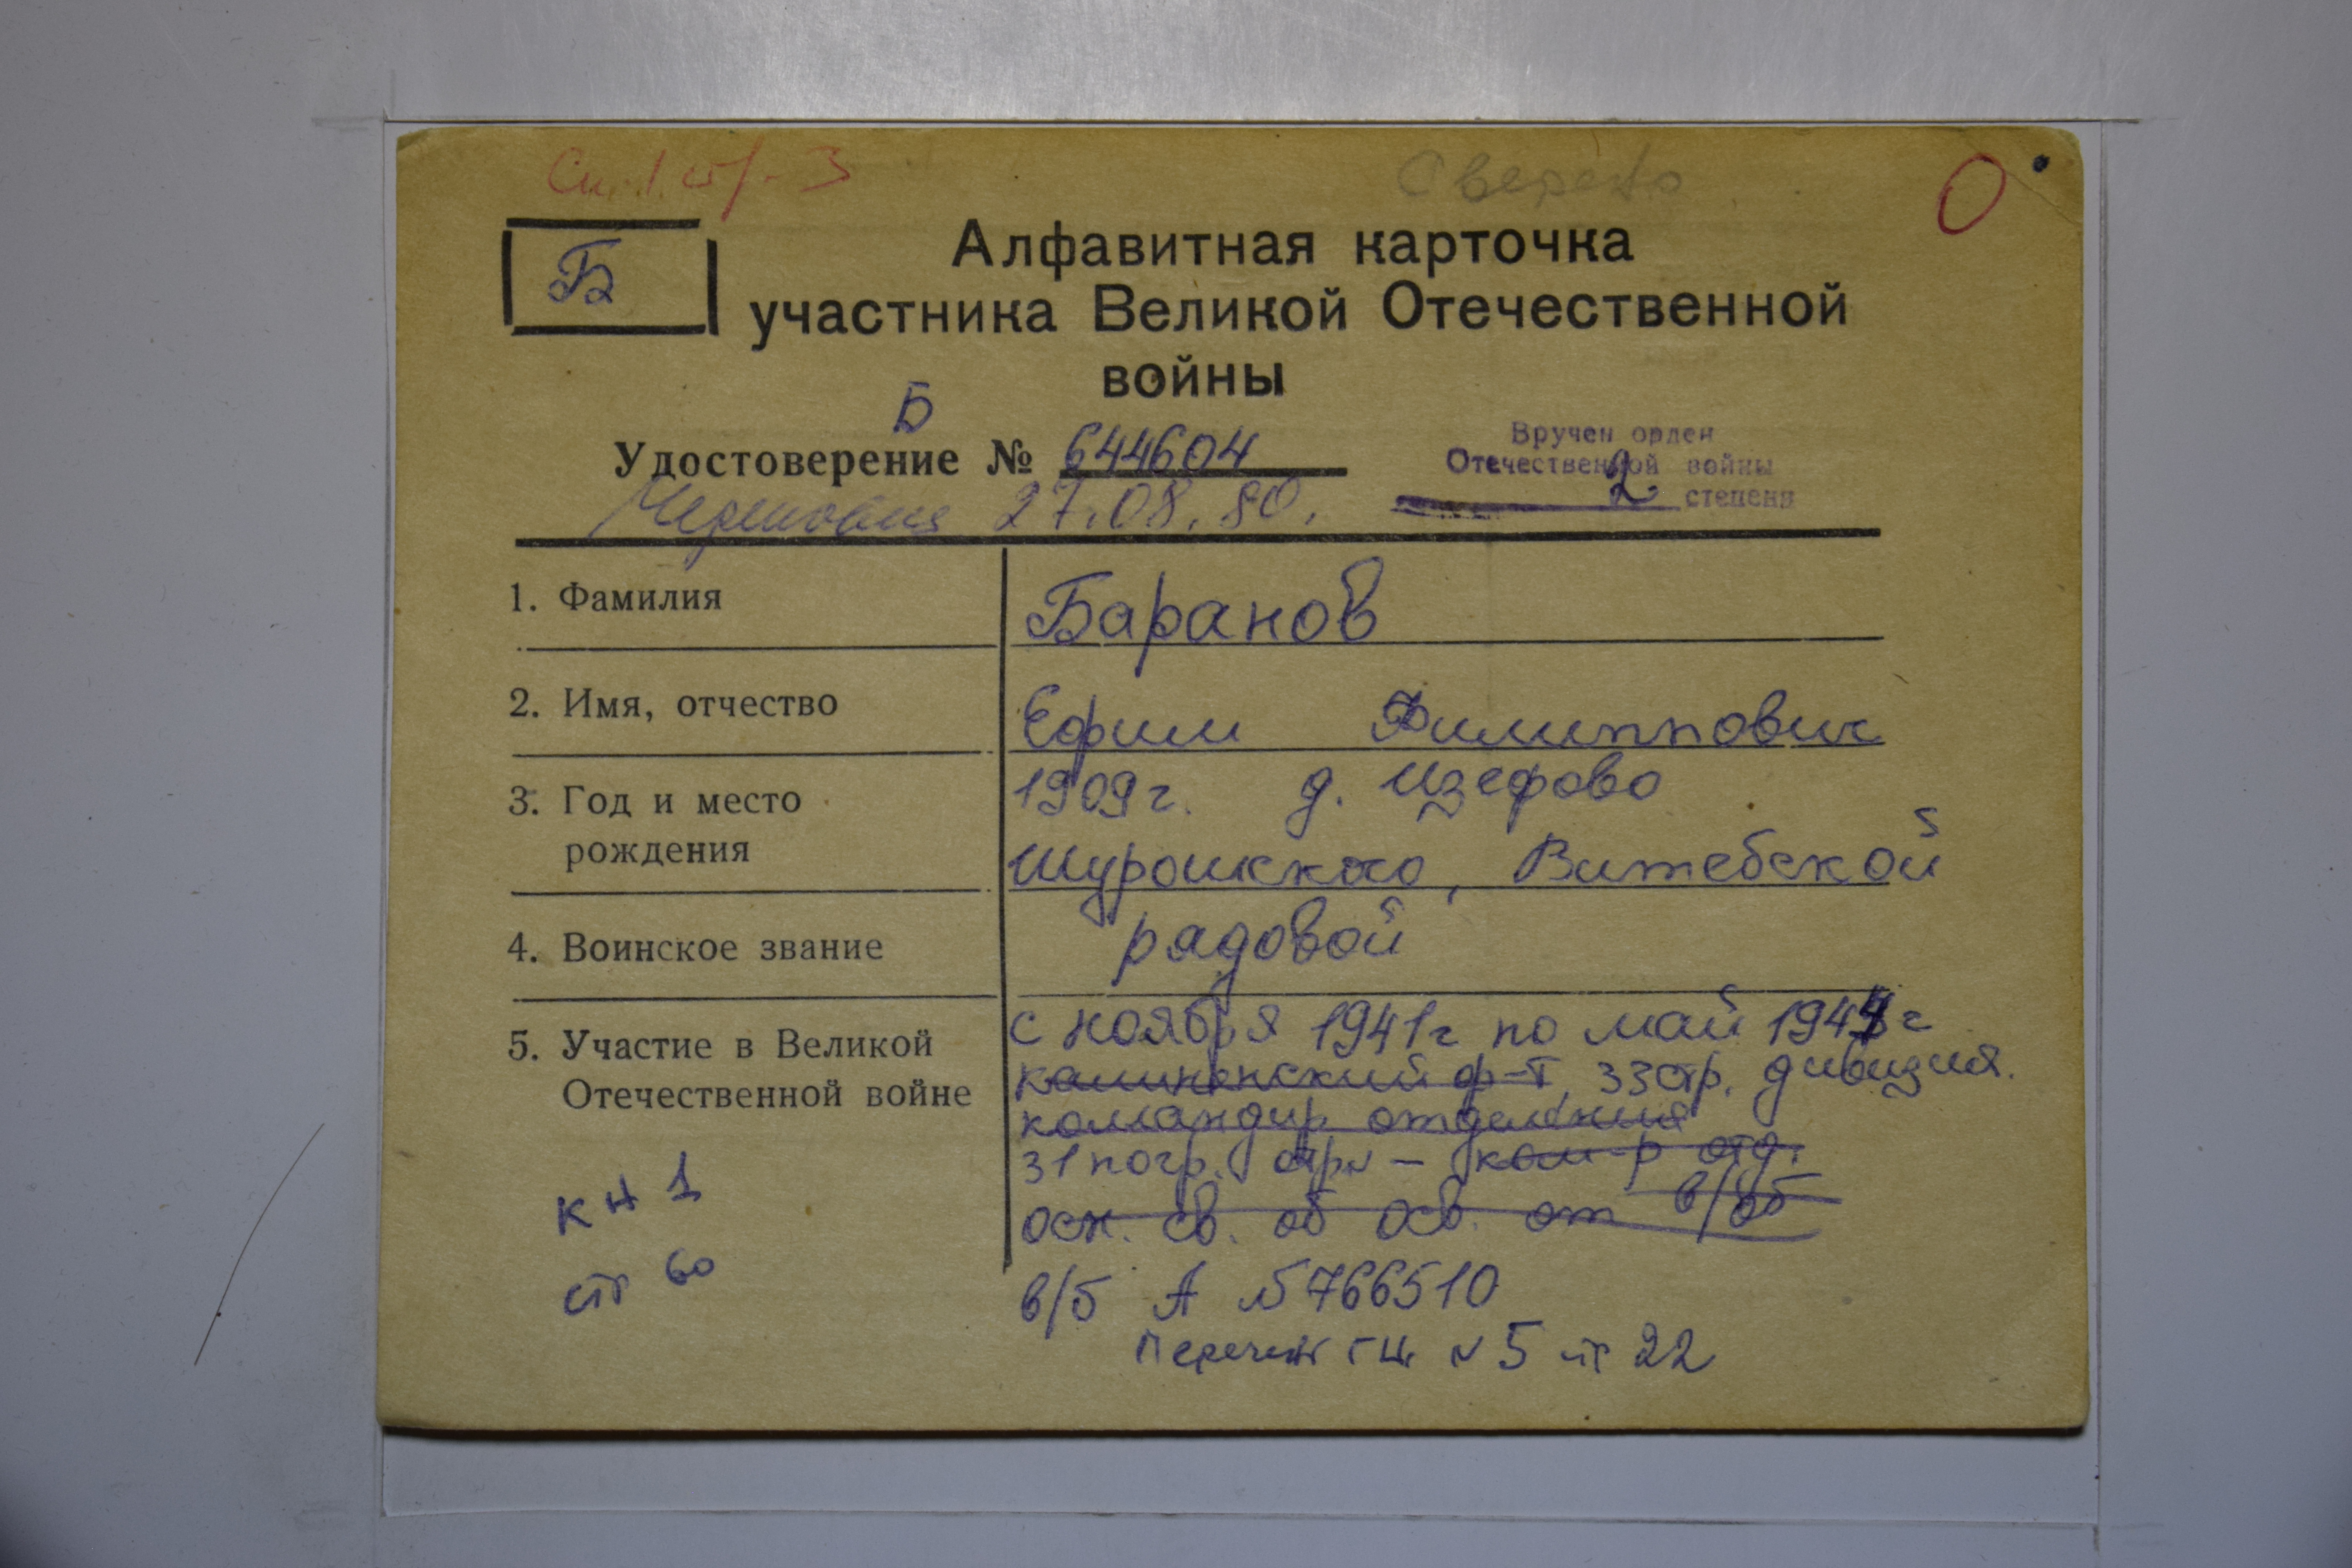 Сп. 1 ст. - 3
Сверено
О
Б
Алфавитная карточка
участника Великой Отечественной
войны
Б
Удостоверение № 644604
27.08.80.
Вручен орден
Отечественной войны
2 степени
1. Фамилия
Баранов
2. Имя, отчество
Ефим Филиппович
3. Год и место
рождения
1909г. д. Изефово
Шурошкского, Витебской
4. Воинское звание
рядовой
5. Участие в Великой
Отечественной войне
с ноября 1941г по май 1944г
калининский ф-т, 33стр. дивизия.
командир отделения
31 погр. отр. – ком-р отд.
осн. св. об осв. от в/об
кн 1
ст 60
в/б А №5766510
Перечень ГЦ №5 ст 22